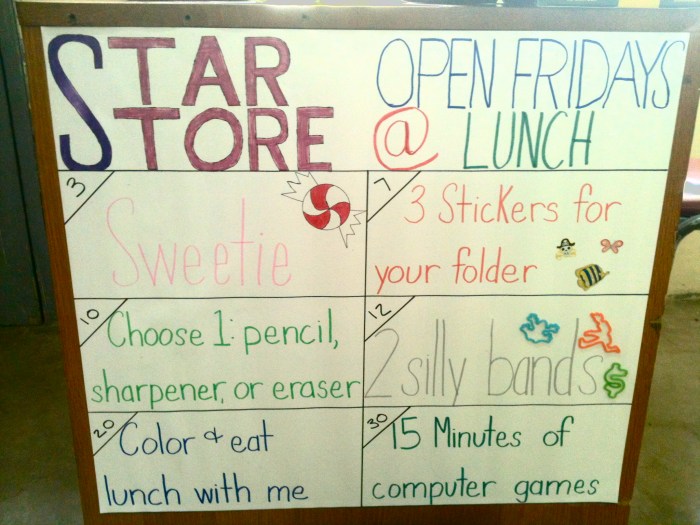 STAR
STORE
OPEN FRIDAYS
@ LUNCH
3
Sweetie
7
3 Stickers for
your folder
10
Choose 1: pencil,
sharpener, or eraser
12
2 silly bands
20
Color & eat
lunch with me
30
15 Minutes of
computer games